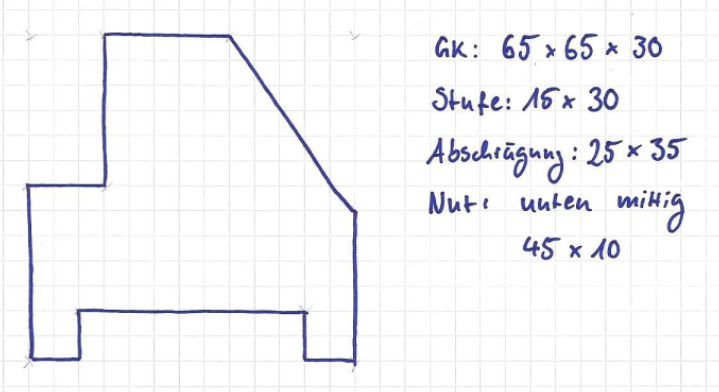 GK: 65 x 65 x 30
Stufe: 15 x 30
Abschrägung: 25 x 35
Nut: unten mittig
45 x 10